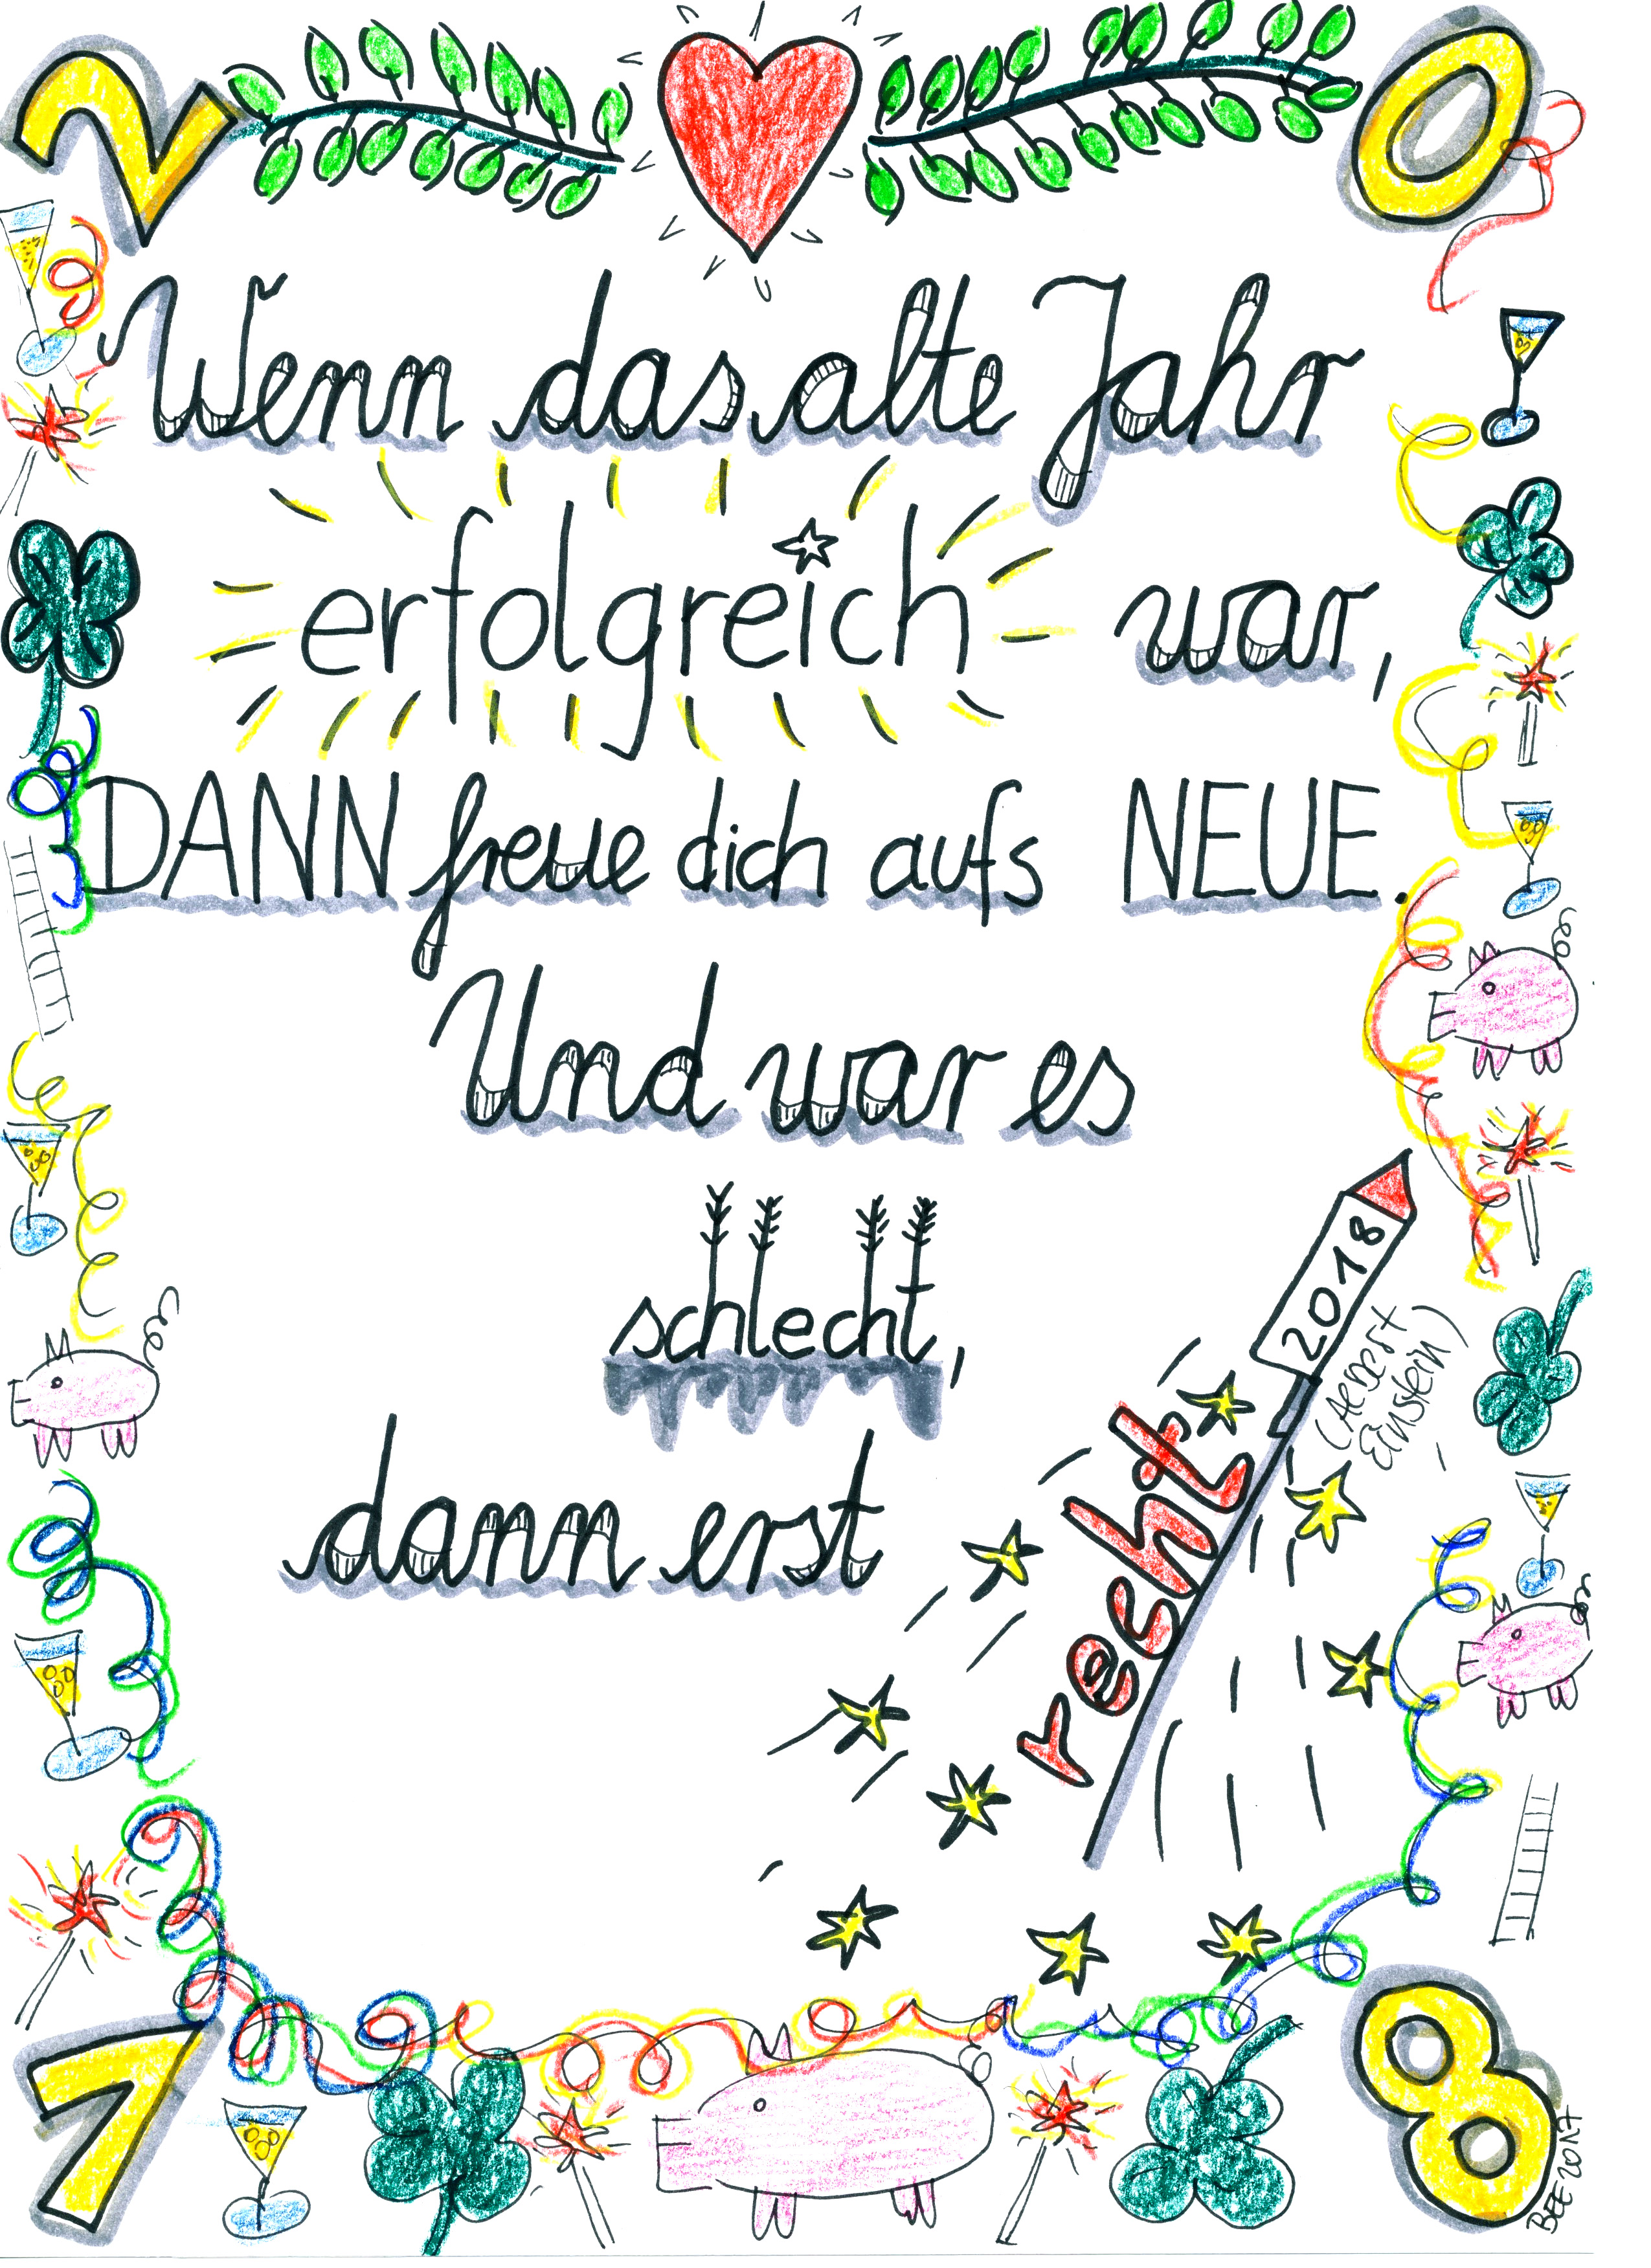 2 0
Wenn das alte Jahr
erfolgreich war,
DANN freue dich aufs NEUE.
Und war es
schlecht,
dann erst
recht
2018
(Albert
Einstein)
1 8
BEE 2017